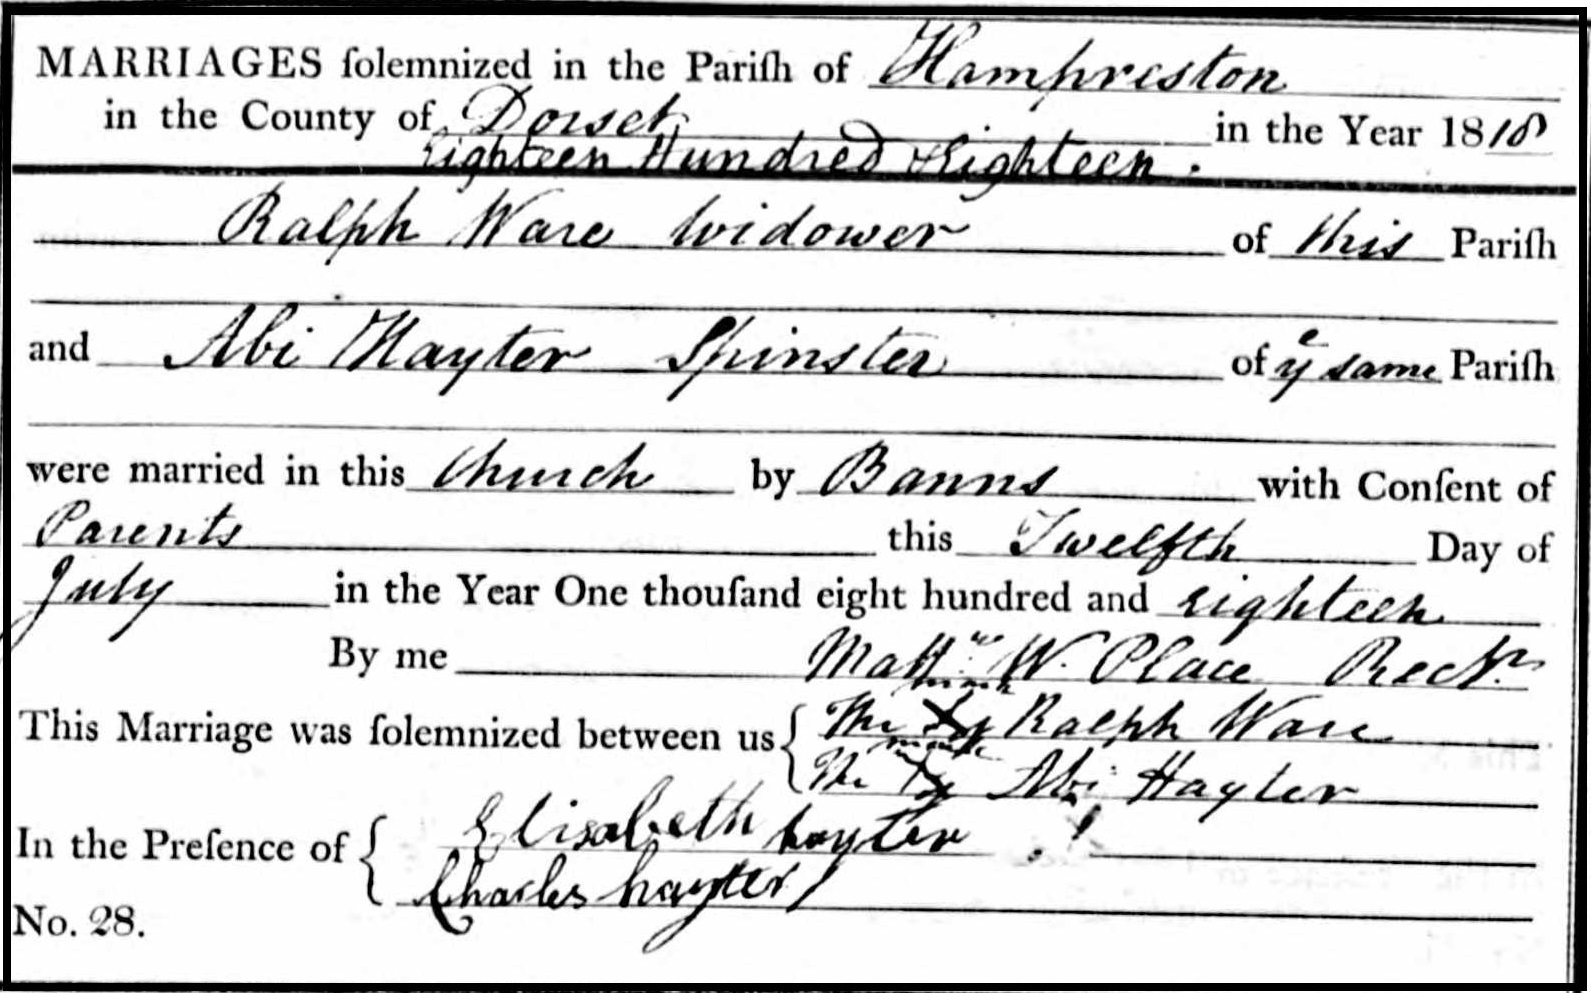 MARRIAGES ſolemnized in the Pariſh of Hampreston
in the County of Dorset in the Year 1818
Eighteen Hundred & Eighteen.
Ralph Ware Widower of this Pariſh
and Abi Hayter Spinster of yᵉ same Pariſh
were married in this Church by Banns with Conſent of
Parents this Twelfth Day of
July in the Year One thouſand eight hundred and eighteen
By me Mattʷ W. Place Rectʳ
mark
This Marriage was ſolemnized between us { The X of Ralph Ware
mark
The X of Abi Hayter
In the Preſence of { Elisabeth hayter
Charles hayter
No. 28.